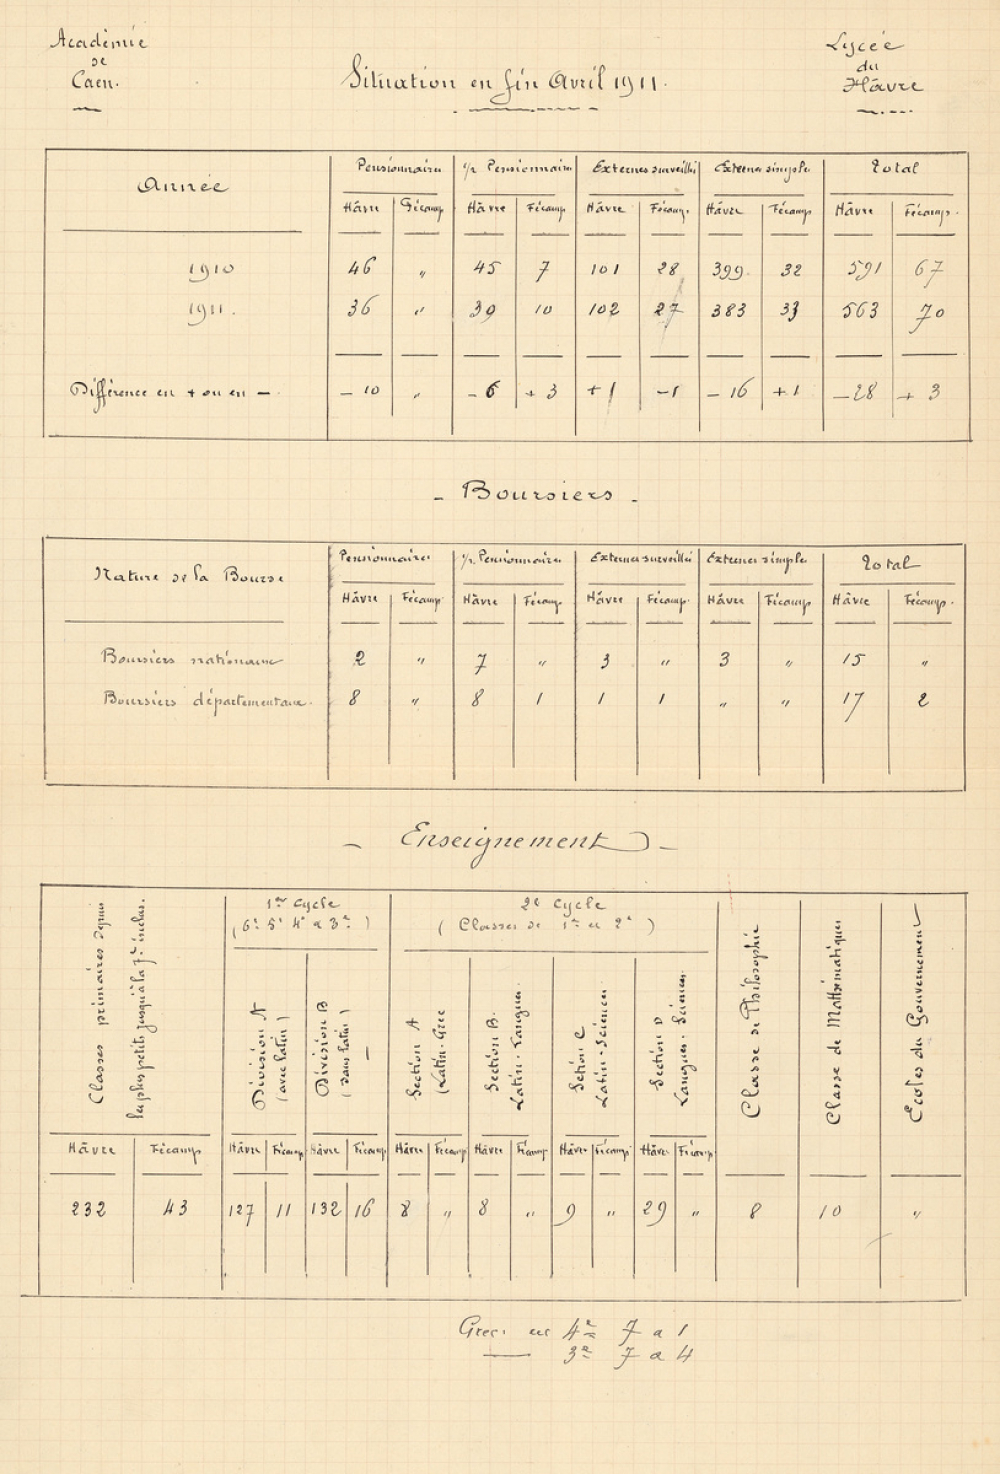 Académie
de
Caen.
Lycée
du
Hâvre
Situation en fin Avril 1911.
Année
Pensionnaires ½ Pensionnaires Externes surveillés Externes simples Total
Hâvre Fécamp Hâvre Fécamp Hâvre Fécamp. Hâvre Fécamp Hâvre Fécamp.
1910 46 " 45 7 101 28 399 32 591 67
1911. 36 " 39 10 102 27 383 33 563 70
Différence en + ou en - - 10 " - 6 + 3 + 1 - 1 - 16 + 1 - 28 + 3
- Boursiers -
Nature de la Bourse
Pensionnaires ½ Pensionnaires Externes surveillés Externes simples Total
Hâvre Fécamp. Hâvre Fécamp. Hâvre Fécamp. Hâvre Fécamp Hâvre Fécamp.
Boursiers nationaux 2 " 7 " 3 " 3 " 15 "
Boursiers départementaux. 8 " 8 1 1 1 " " 17 2
- Enseignement -
Classes primaires depuis
les plus petits jusqu'à la 7e inclus.
1er cycle
(6e 5e 4e & 3e)
2e cycle
(Classes de 1re et 2e)
Division A
(avec latin)
Division B
(sans latin)
Section A
(Latin-Grec
Section B.
Latin-Langues.
Section C
Latin-Sciences
Section D
Langues-Sciences
Classe de Philosophie
Classe de Mathématiques
Ecoles du Gouvernement
Hâvre Fécamp Hâvre Fécamp Hâvre Fécamp Hâvre Fécamp Hâvre Fécamp Hâvre Fécamp Hâvre Fécamp
232 43 127 11 132 16 8 " 8 " 9 " 29 " 8 10 "
Grec: en 4e 7 a 1
— 3e 7 a 4